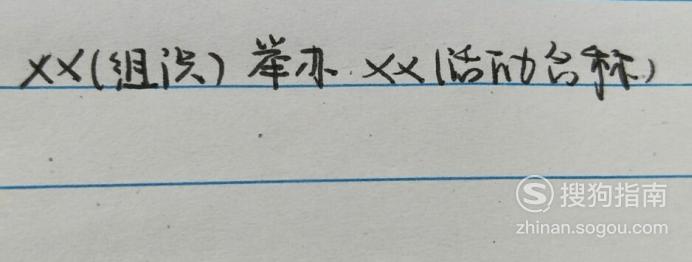 XX(组识)举办 XX(活动名称)
搜狗指南
zhinan.sogou.com